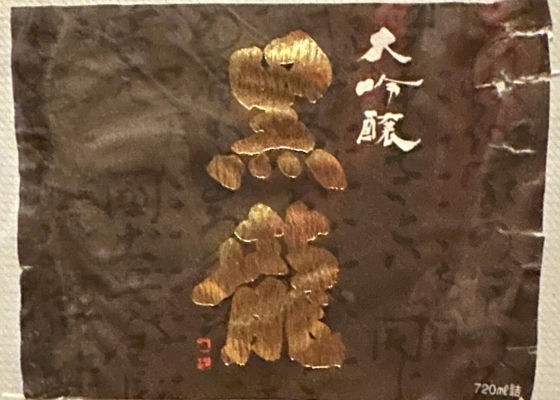 大吟醸
黒龍
720ml詰